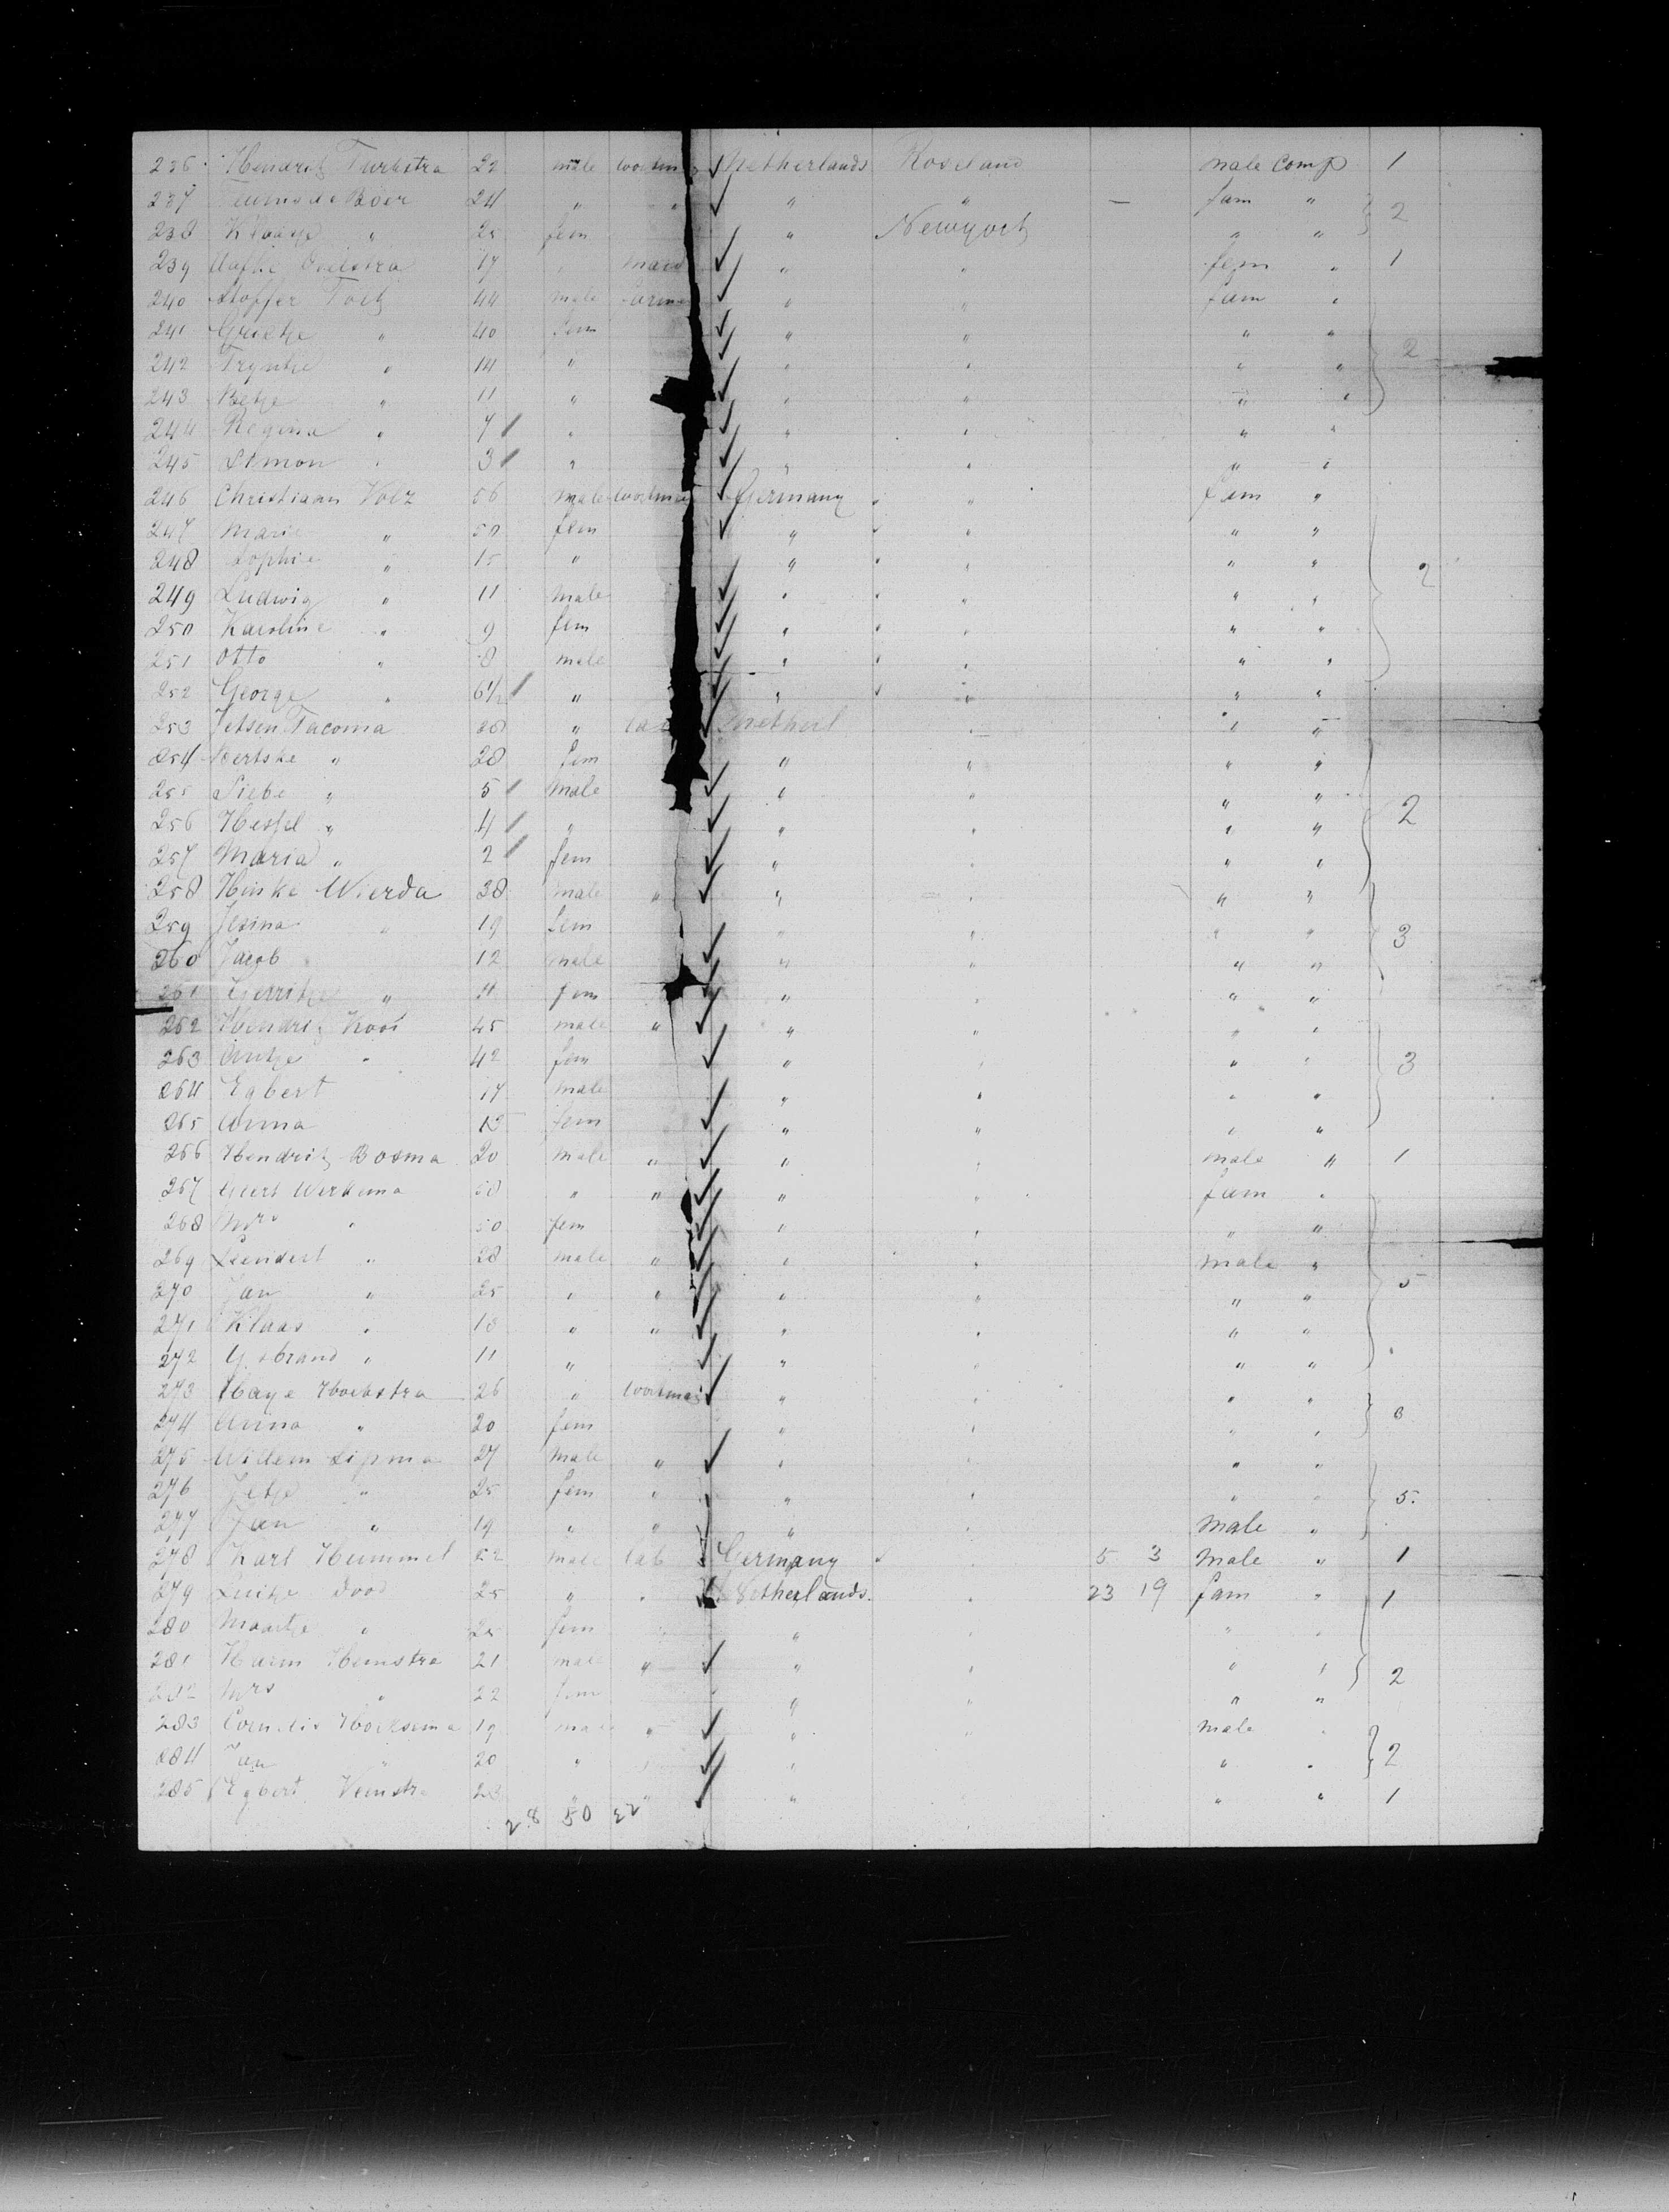 236 Hendrik Turkstra 22 male workm Netherlands Roseland male Comp 1
237 Teunis de Boer 24 " " " " — fam " 2
238 Klaasje " 25 fem " Newyork " "
239 Aafke 17 " maid " " fem " 1
240 Stoffer 44 male farmer " " fam "
241 Grietje " 40 fem " " " "
242 Tryntje " 14 " " " " " 2
243 Betje " 11 " " " " "
244 Regina " 7 " " " " "
245 Simon " 3 " " " " "
246 Christiaan Volz 56 male workman Germany " fam "
247 Marie " 50 fem " " " "
248 Sophie " 15 " " " " " 2
249 Ludwig " 11 male " " " "
250 Karoline " 9 fem " " " "
251 Otto " 8 male " " " "
252 George " 6½ " " " " "
253 Jetsen Tacoma 28 " lab Netherl " " "
254 " 28 fem " " " "
255 Siebe " 5 male " " " "
256 Hessel " 4 " " " " " 2
257 Maria " 2 fem " " " "
258 Hinke Wierda 38 male " " " " "
259 Jesina " 19 fem " " " " 3
260 Jacob " 12 male " " " "
261 Gerritje " 4 fem " " " "
262 Hendrik Kooi 45 male " " " " "
263 Antje " 42 fem " " " " 3
264 Egbert 17 male " " " "
265 Anna fem " " " "
266 Hendrik Bosma 20 male " " " male " 1
267 Geert Werkema 58 " " " " fam "
268 Mrs " 50 fem " " " "
269 Leendert " 28 male " " " male "
270 Jan " 25 " " " " " " 5
271 Klaas " 18 " " " " " "
272 Ysbrand " 11 " " " " "
273 Haye Hoekstra 26 " workman " " " "
274 Anna " 20 fem " " " "
275 Willem Sipma 27 male " " " " "
276 Jetje " 25 fem " " " " " 5.
277 Jan " 19 " " " " male "
278 Karl Hummel 22 male lab Germany " 5 3 male " 1
279 Luitje Dood 25 " " Netherlands. " 23 19 fam " 1
280 Maartje " 25 fem " " "
281 Harm Hemstra 21 male " " " " " 2
282 Mrs " 22 fem " " " "
283 Cornelis Hoeksema 19 male " " male "
284 Jan " 20 " " " " " 2
285 Egbert Veenstra 23 " " " " " 1
28 50 32